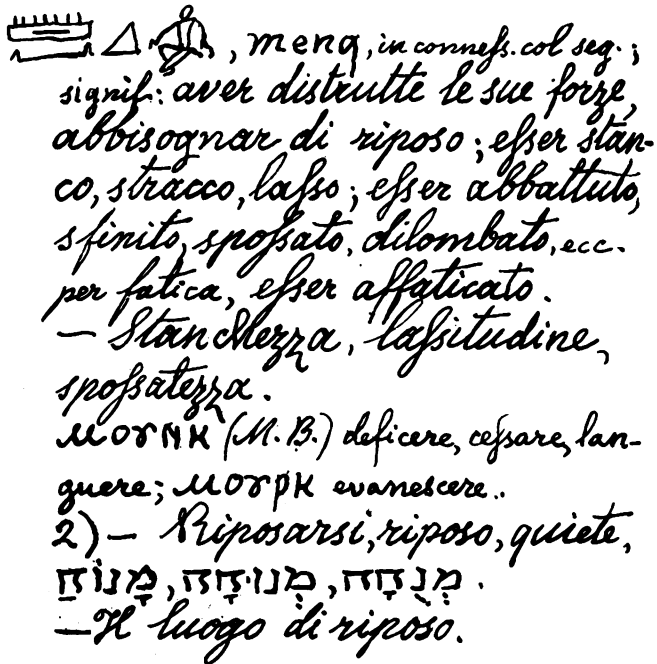 𓏠𓈖𓈎, menq, in conneſs. col seg.;
signif: aver distrutte le sue forze,
abbisognar di riposo; eſser stan-
co, stracco, laſso; eſser abbattuto,
sfinito, spoſsato, dilombato, ecc.
per fatica, eſser affaticato.
— Stanchezza, laſsitudine,
spoſsatezza.
ⲙⲟⲩⲛⲕ (M. B.) deficere, ceſsare, lan-
guere; ⲙⲟⲩⲣⲕ evanescere..
2) — Riposarsi, riposo, quiete,
מָנוֹחַ, מְנוּחָה, מְנֻחָה.
— Il luogo di riposo.